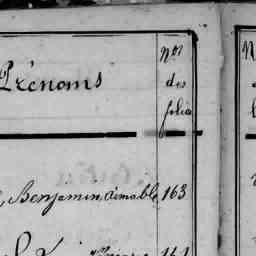 Prénoms
Nos
des
folios
Benjamin, aimable, 163